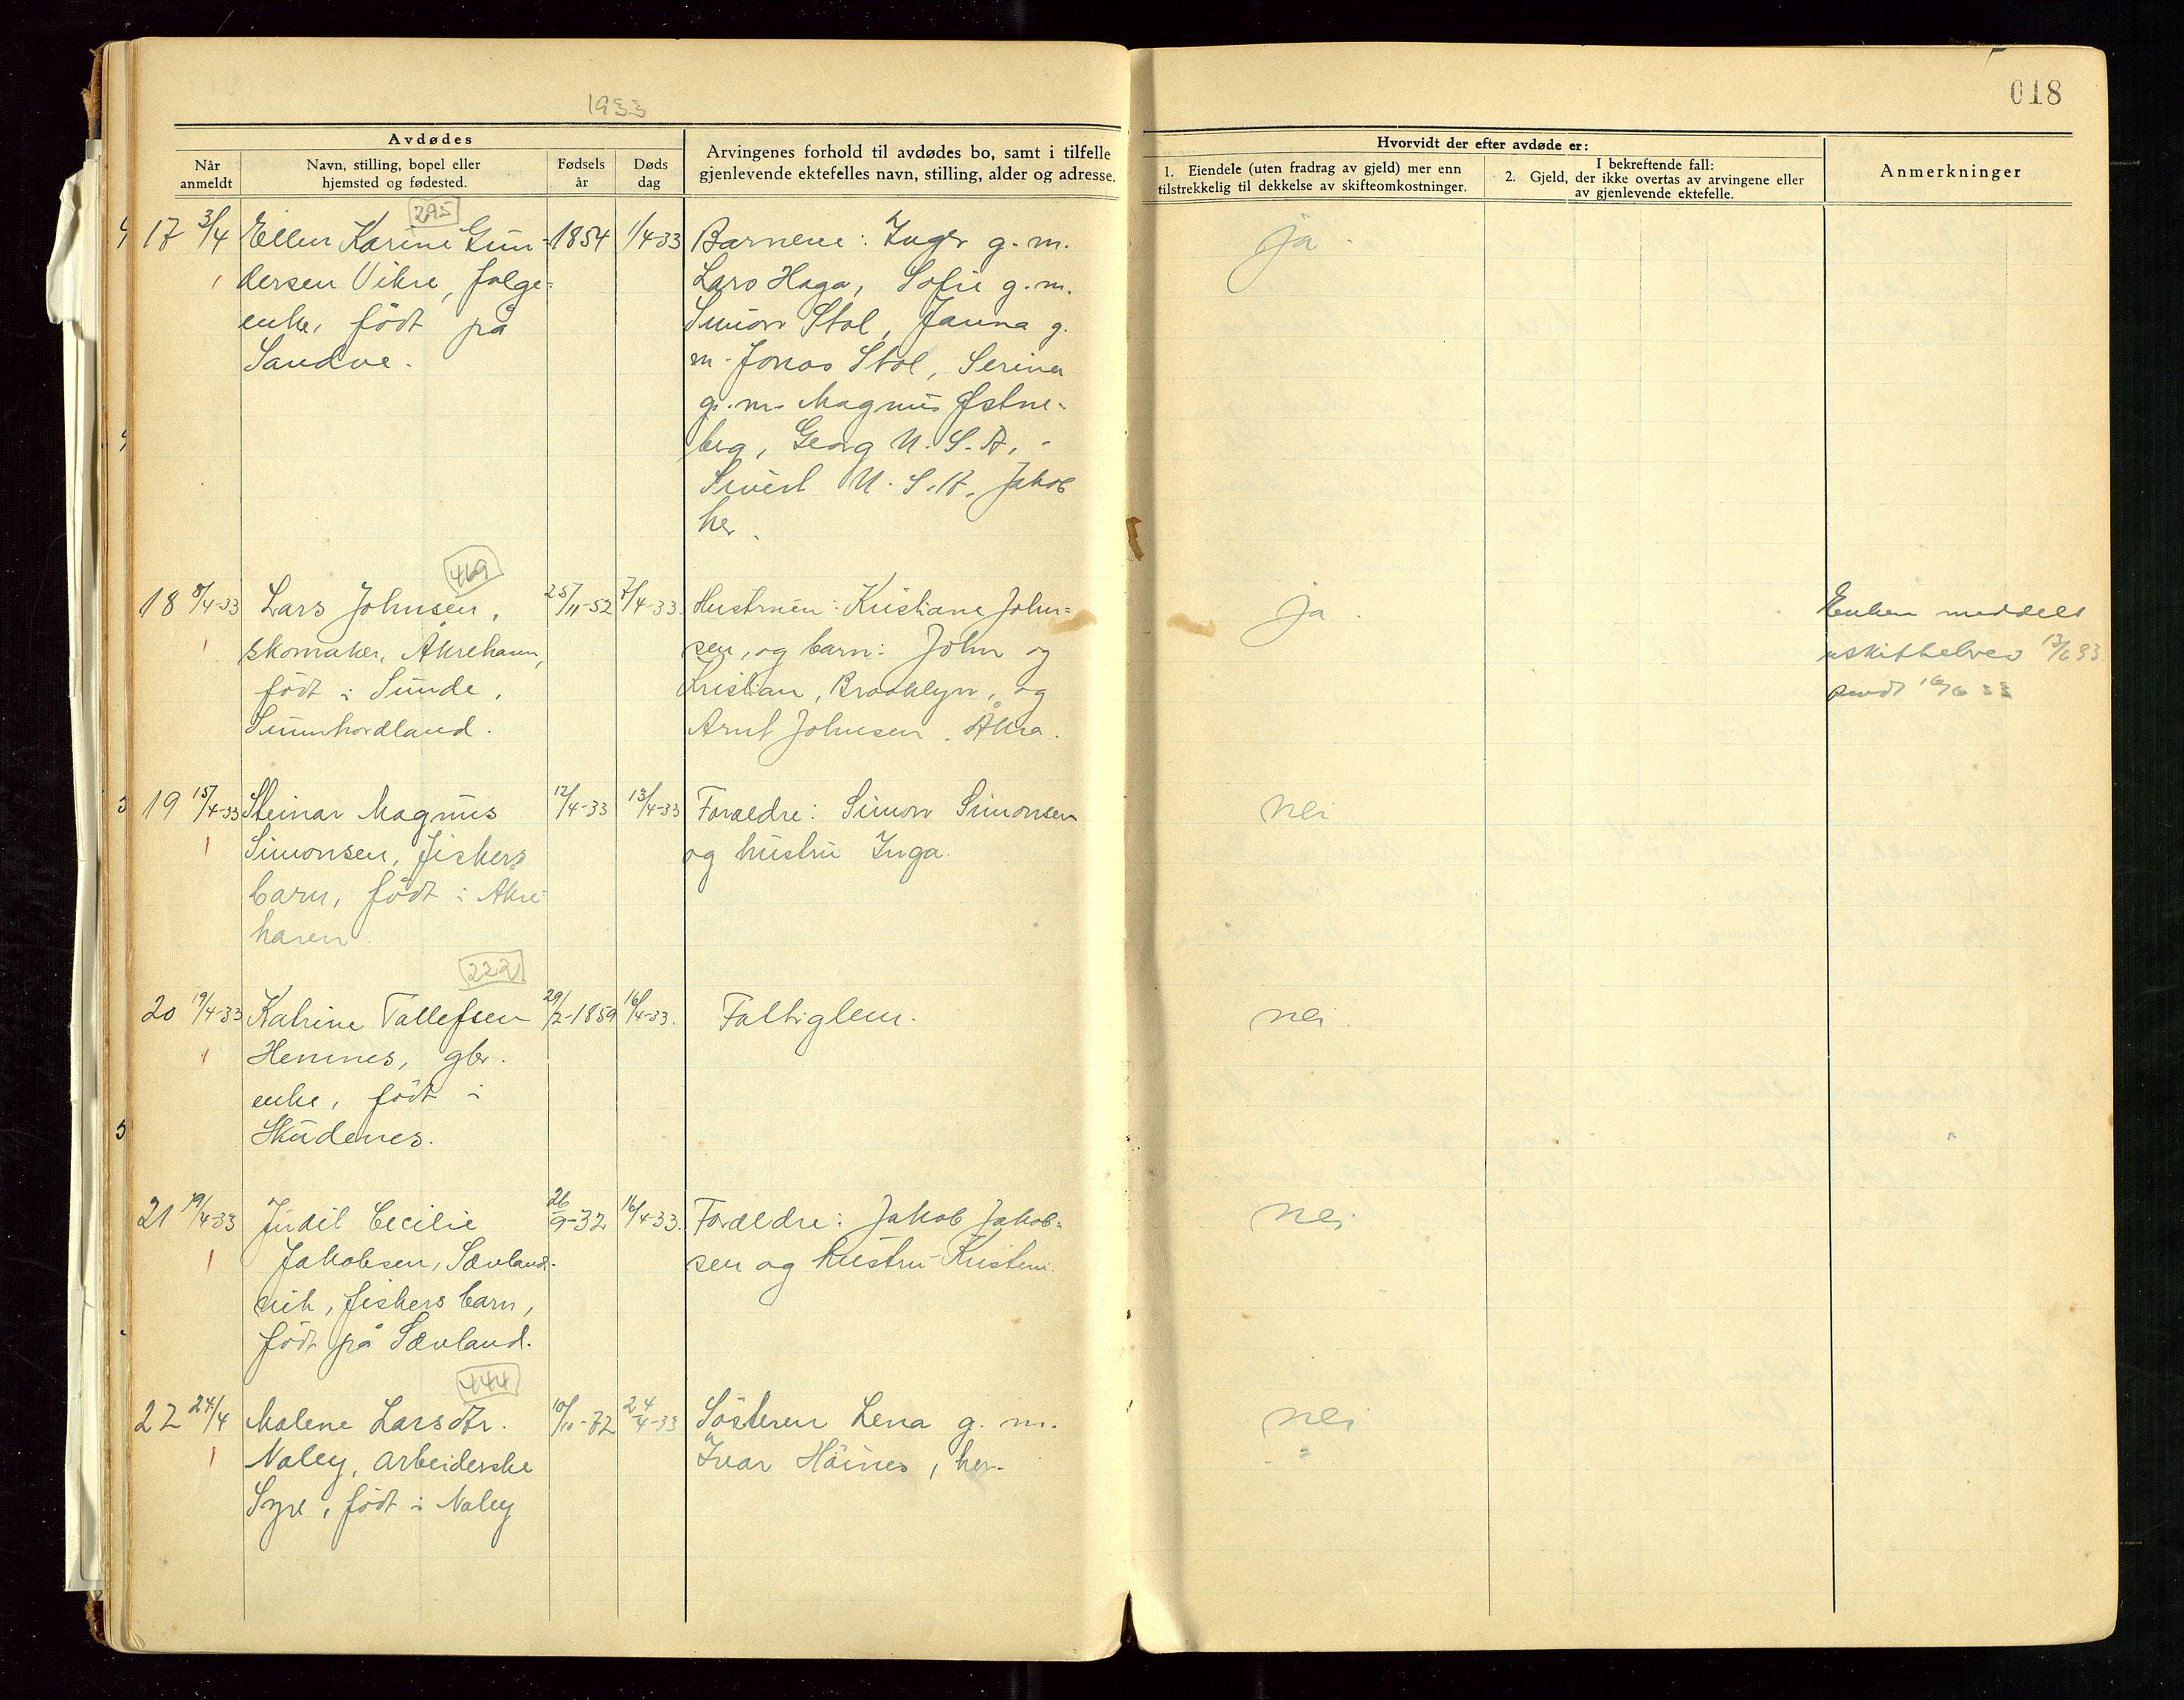 1933
018
Avdødes
Når
anmeldt
Navn, stilling, bopel eller
hjemsted og fødested.
Fødsels
år
Døds
dag
Arvingenes forhold til avdødes bo, samt i tilfelle
gjenlevende ektefelles navn, stilling, alder og adresse.
Hvorvidt der efter avdøde er:
1. Eiendele (uten fradrag av gjeld) mer enn
tilstrekkelig til dekkelse av skifteomkostninger.
I bekreftende fall:
2. Gjeld, der ikke overtas av arvingene eller
av gjenlevende ektefelle.
Anmerkninger
295
17 3/4 Ellen Karine Gun-
dersen Vikre, folge-
enke, född på
Sandve.
1854 1/4-33
Barnene: Inger g. m.
Lars Haga, Sofie g. m.
Simon Stol, Janna g.
m. Jonas Stol, Serina
g. m. Magnus Østne-
berg, Georg U. S. A.,
Sivert U. S. A. Jakob
her.
ja.
469
18 8/4-33 Lars Johnsen,
skomaker, Åkrehavn,
född i Sunde,
Sunnhordland.
25/11-52 7/4-33.
Hustruen: Kristiane John-
sen, og barn: John og
Kristian, Brooklyn, og
Arnt Johnsen. Åkra.
ja.
Enken meddelt
uskiftebev 13/6 33.
sendt 16/6 33
19 15/4-33 Steinar Magnus
Simonsen, fiskers
barn, född i Åkre-
havn.
12/4-33 13/4-33
Foreldre: Simon Simonsen
og hustru Inga.
nei
222
20 19/4-33 Katrine Tollefsen
Hemnes, gbr.
enke, född i
Skudenes.
29/2-1859 16/4-33.
Faltiglem.
nei.
21 19/4-33 Judit Cecilie
Jakobsen, Sævland-
vik, fiskers barn,
född på Sævland.
26/9-32 16/4-33.
Foreldre: Jakob Jakob-
sen og hustru Kristine
nei
444
22 24/4 Malene Larsdtr.
Naley, arbeiderske
Syre, född i Naley
10/11-72 24/4-33
Sösteren Lena g. m.
Ivar Höines, her.
nei